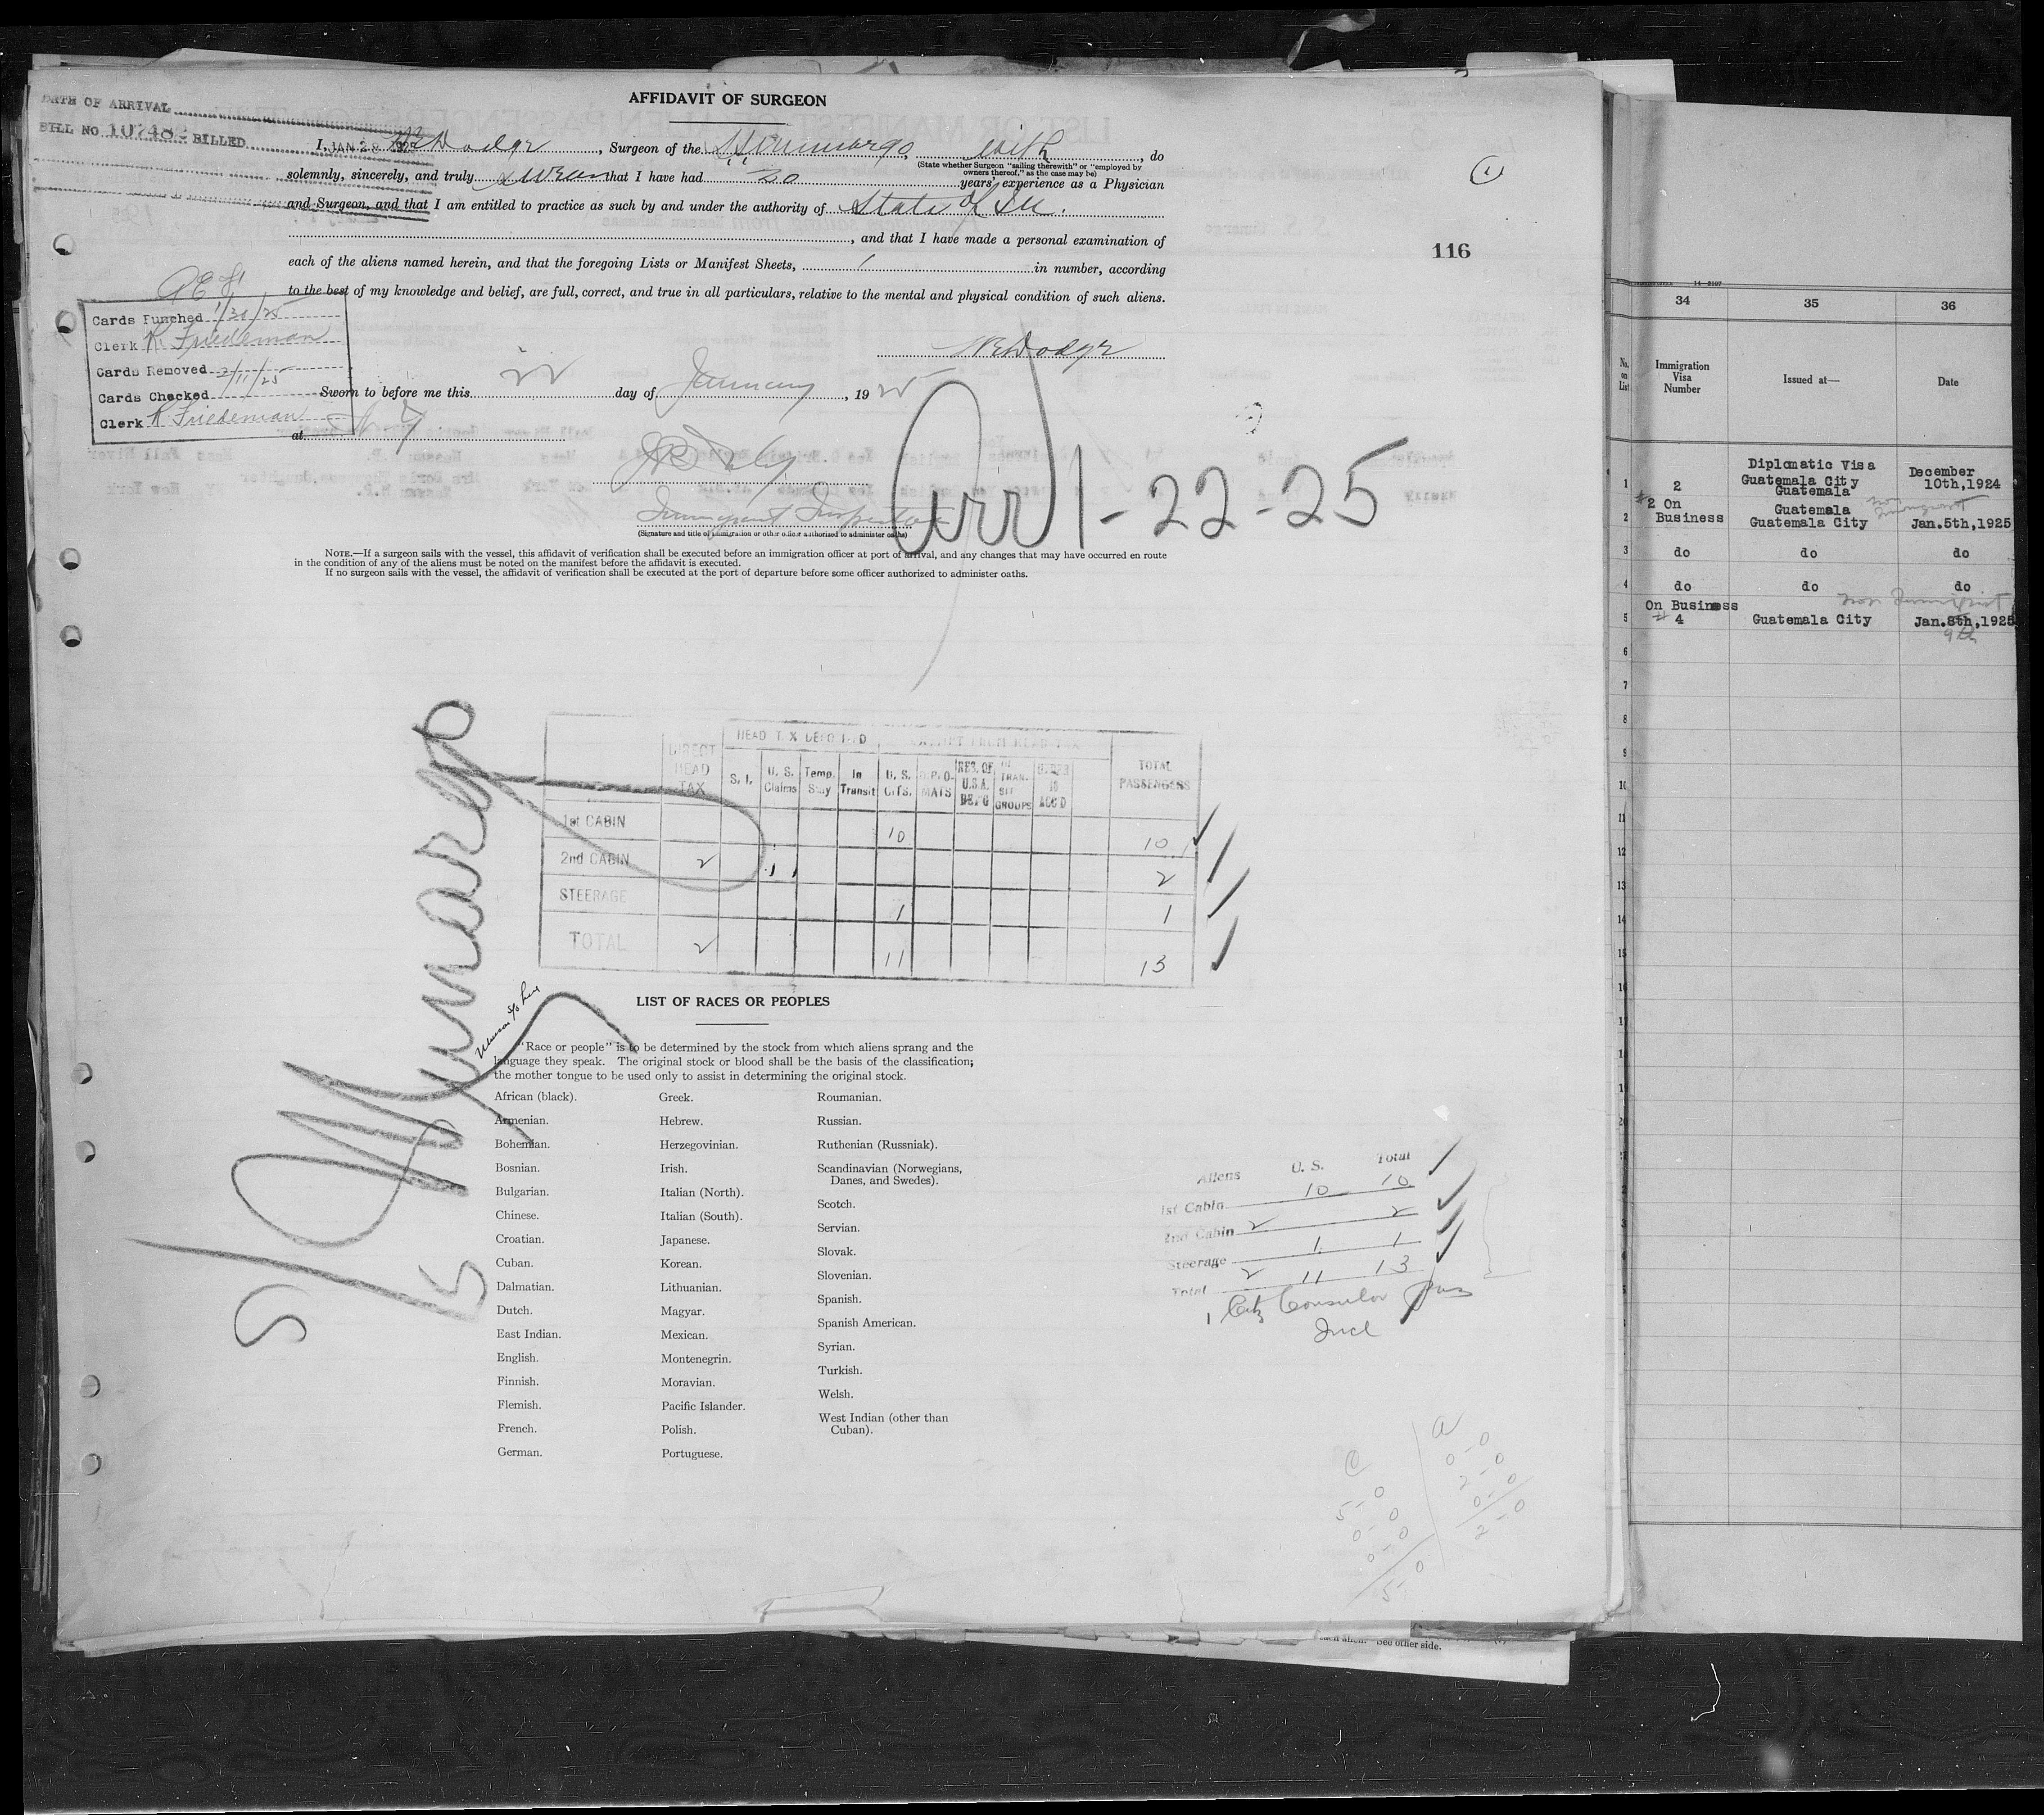 AFFIDAVIT OF SURGEON
DATE OF ARRIVAL
BILL NO 107482 BILLED
JAN 28 1925
I, Dodge, Surgeon of the S.S. Munargo, with, do
(State whether Surgeon "sailing therewith" or "employed by
owners thereof," as the case may be)
solemnly, sincerely, and truly swear that I have had 30 years' experience as a Physician
and Surgeon, and that I am entitled to practice as such by and under the authority of State of Ill.
, and that I have made a personal examination of
116
each of the aliens named herein, and that the foregoing Lists or Manifest Sheets, 1 in number, according
to the best of my knowledge and belief, are full, correct, and true in all particulars, relative to the mental and physical condition of such aliens.
Cards Punched 1/31/25
Clerk K. Friedeman
Cards Removed 2/11/25
Cards Checked
Clerk K. Friedeman
Dodge
Sworn to before me this 22 day of January, 1925
at N Y
Immigrant Inspector
(Signature and title of immigration or other officer authorized to administer oaths)
Arr 1-22-25
NOTE.—If a surgeon sails with the vessel, this affidavit of verification shall be executed before an immigration officer at port of arrival, and any changes that may have occurred en route
in the condition of any of the aliens must be noted on the manifest before the affidavit is executed.
If no surgeon sails with the vessel, the affidavit of verification shall be executed at the port of departure before some officer authorized to administer oaths.
S/S Munargo
DIRECT HEAD TAX
S. I.
U. S. Claims
Temp. Stay
In Transit
U. S. CITS.
RES. OF U.S.A.
TRAN. SIT GROUPS
UNDER 16 ACC'D
TOTAL PASSENGERS
1st CABIN 10 10
2nd CABIN 2 2
STEERAGE 1 1
TOTAL 2 11 13
LIST OF RACES OR PEOPLES
"Race or people" is to be determined by the stock from which aliens sprang and the
language they speak. The original stock or blood shall be the basis of the classification;
the mother tongue to be used only to assist in determining the original stock.
African (black).
Armenian.
Bohemian.
Bosnian.
Bulgarian.
Chinese.
Croatian.
Cuban.
Dalmatian.
Dutch.
East Indian.
English.
Finnish.
Flemish.
French.
German.
Greek.
Hebrew.
Herzegovinian.
Irish.
Italian (North).
Italian (South).
Japanese.
Korean.
Lithuanian.
Magyar.
Mexican.
Montenegrin.
Moravian.
Pacific Islander.
Polish.
Portuguese.
Roumanian.
Russian.
Ruthenian (Russniak).
Scandinavian (Norwegians,
Danes, and Swedes).
Scotch.
Servian.
Slovak.
Slovenian.
Spanish.
Spanish American.
Syrian.
Turkish.
Welsh.
West Indian (other than
Cuban).
Aliens U. S. Total
1st Cabin 10 10
2nd Cabin 2 2
Steerage 1 1
Total 2 11 13
Incl
C
5-0
0-0
0-0
5-0
a
0-0
2-0
0-0
2-0
34 35 36
No. on List
Immigration Visa Number
Issued at—
Date
1 2 Diplomatic Visa Guatemala City Guatemala December 10th,1924
2 #2 On Business Guatemala Guatemala City Jan.5th,1925
Non Immigrant
3 do do do
4 do do do
Non Immigrant
5 On Business #4 Guatemala City Jan.8th,1925
9th
6
7
8
9
10
11
12
13
14
15
See other side.